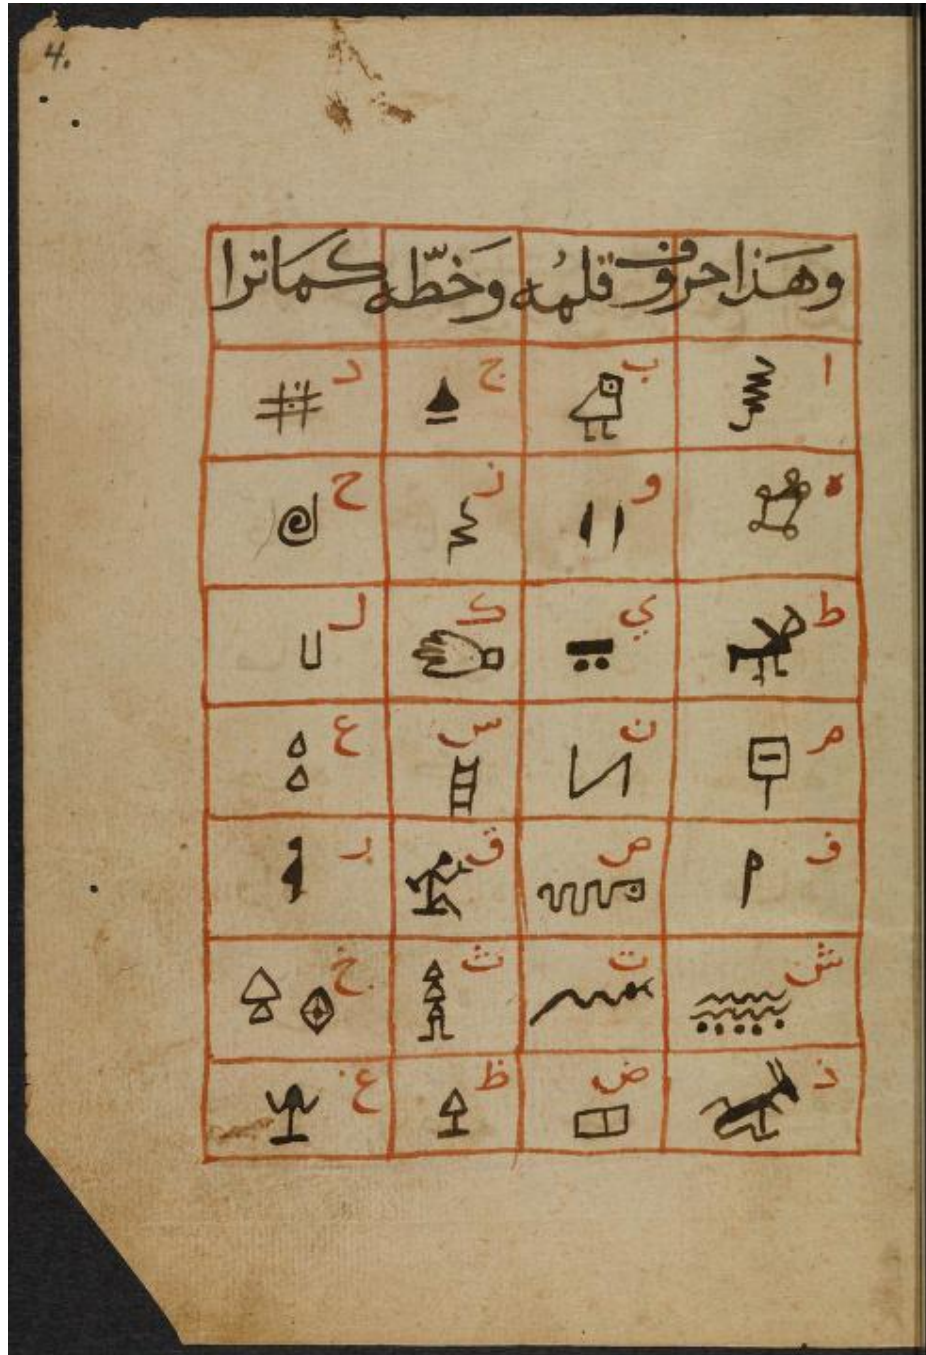 4.
وهَذا حروف قلمُه وَخطّه كَمَا ترا
ا ب ج د
ه و ز ح
ط ي ك ل
م ن س ع
ف ص ق ر
ش ت ث خ
ذ ض ظ غ